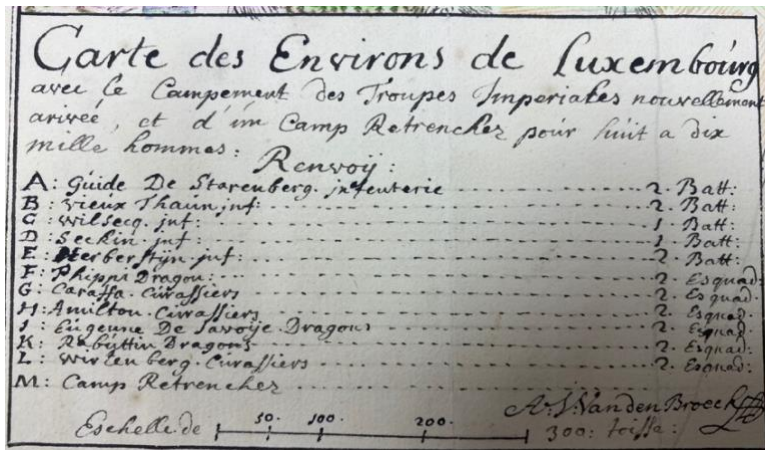 Carte des Environs de Luxembourg
avec le Campement des Troupes Imperiales nouvellement
arivée, et d'un Camp Retrenchez pour huit a dix
mille hommes:
Renvoÿ:
A: Guide De Starenberg. infenterie 2. Batt:
B: vieux Thaun jnf: 2. Batt:
C: Wilsecq. jnf: 1 Batt:
D: Seckin jnf: 1 Batt:
E: Herberstÿn jnf: 2 Batt:
F: Phippi Dragon: 2. Esquad:
G: Caraffa Cirassiers 2. Esquad.
H: Amilton. Cirrassiers 2. Esquad.
I: Eugenne De Savoÿe Dragons 2. Esquad.
K: Rabuttin Dragons 2. Esquad:
L: Wirtenberg. Curassiers 2. Esquad:
M: Camp Retrenchez
A: J: Vanden Broeck
Eschelle de 50. 100. 200. 300: toisse: